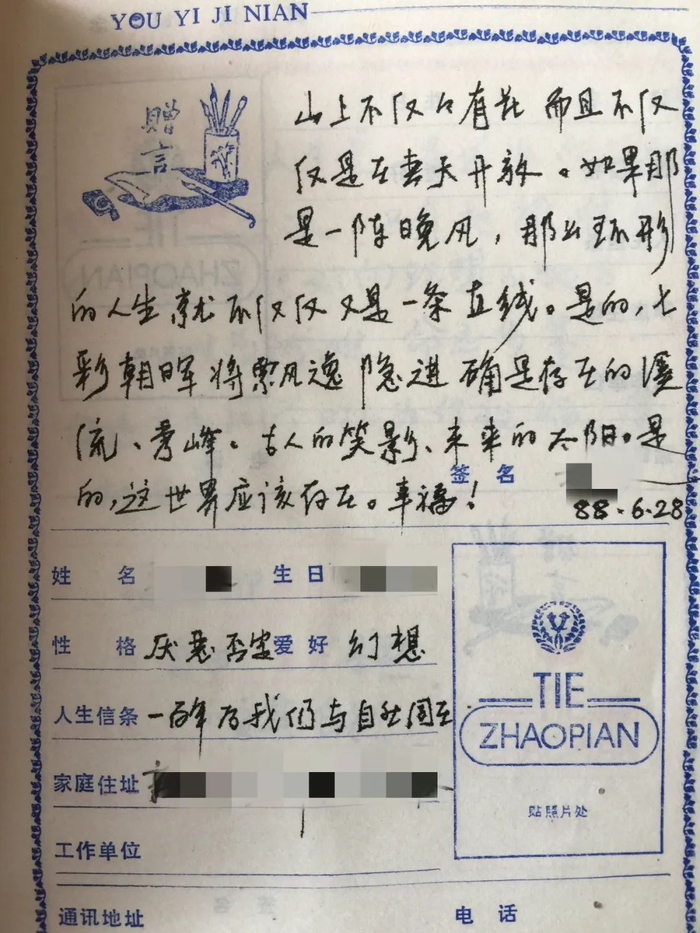 YOU YI JI NIAN
赠言
山上不仅只有花 而且不仅
仅是在春天开放。如果那
是一阵晚风，那么环形
的人生就不仅仅又是一条直线。是的，七
彩朝晖将飘逸隐进确是存在的溪
流、秀峰。古人的笑影、未来的太阳。是
的，这世界应该存在。幸福！
签名
88.6.28
姓名 生日
性格 厌恶否定 爱好 幻想
人生信条 一百年后我们与自然同在
家庭住址
工作单位
通讯地址 电话
TIE
ZHAOPIAN
贴照片处